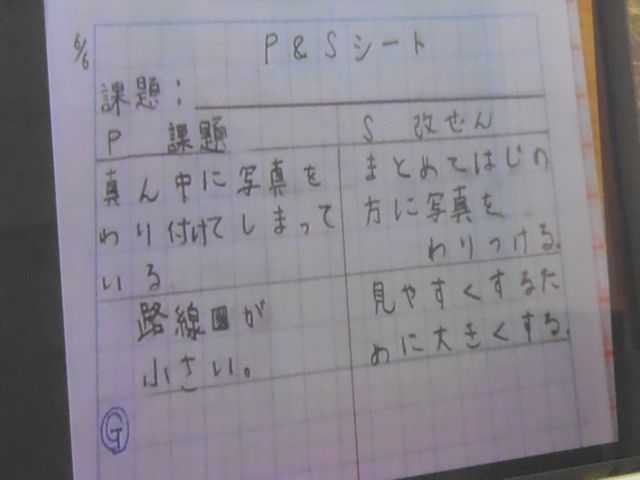 6/6
P&Sシート
課題:
P 課題
S 改ぜん
真ん中に写真を
わり付けてしまって
いる
まとめてはじの
方に写真を
わりつける。
路線図が
小さい。
見やすくするた
めに大きくする。
G